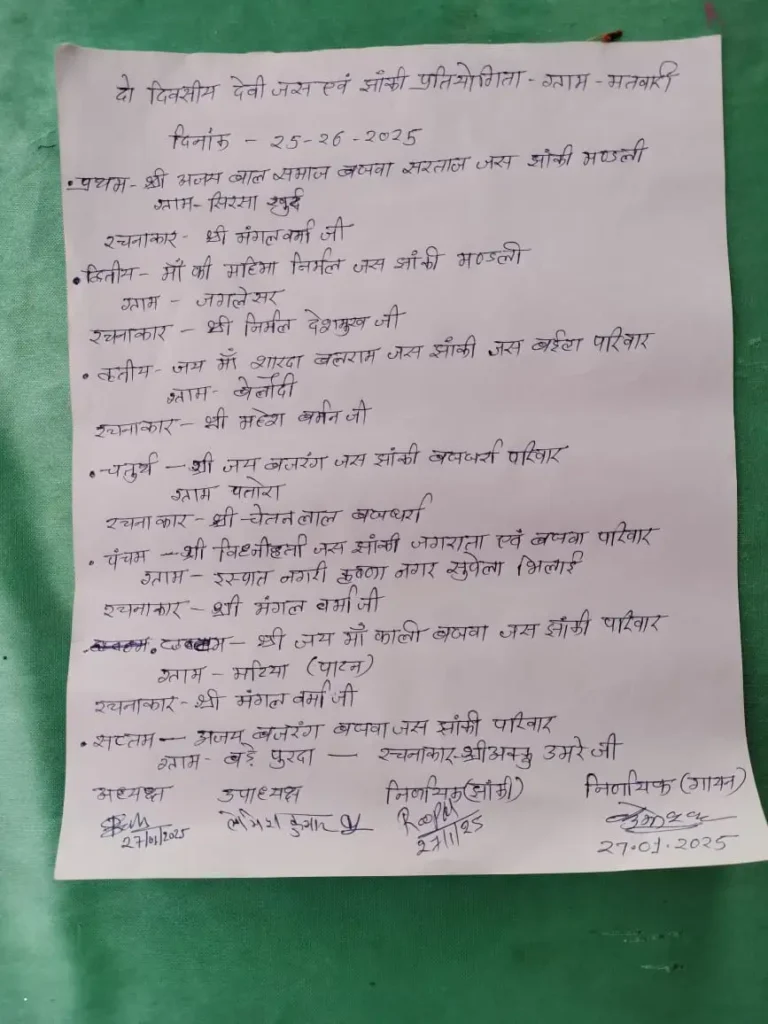 दो दिवसीय देवी जस एवं झांकी प्रतियोगिता - ग्राम - मतवारी
दिनांक - 25-26-2025
• प्रथम - श्री अजय बाल समाज बघवा सरताज जस झांकी मण्डली
ग्राम - सिरसा खुर्द
रचनाकार - श्री मंगल वर्मा जी
• द्वितीय - माँ की महिमा निर्मल जस झांकी मण्डली
ग्राम - जगलेसर
रचनाकार - श्री निर्मल देशमुख जी
• तृतीय - जय माँ शारदा बलराम जस झांकी जस बईहा परिवार
ग्राम - बेलौदी
रचनाकार - श्री महेश बर्मन जी
• चतुर्थ - श्री जय बजरंग जस झांकी परिवार
ग्राम पतोरा
रचनाकार - श्री चेतन लाल
• पंचम - श्री विघ्नहर्ता जस झांकी जगराता एवं बघवा परिवार
ग्राम - इस्पात नगरी कृष्णा नगर सुपेला भिलाई
रचनाकार - श्री मंगल वर्मा जी
- श्री जय माँ काली बघवा जस झांकी परिवार
ग्राम - मटिया (पाटन)
रचनाकार - श्री मंगल वर्मा जी
• सप्तम - अजय बजरंग बघवा जस झांकी परिवार
ग्राम - बड़े पुरदा - रचनाकार - श्री अक्कु उमरे जी
अध्यक्ष उपाध्यक्ष निर्णायक (झांकी) निर्णायक (गायन)
27/01/2025 कुमार 27/1/25 27.01.2025